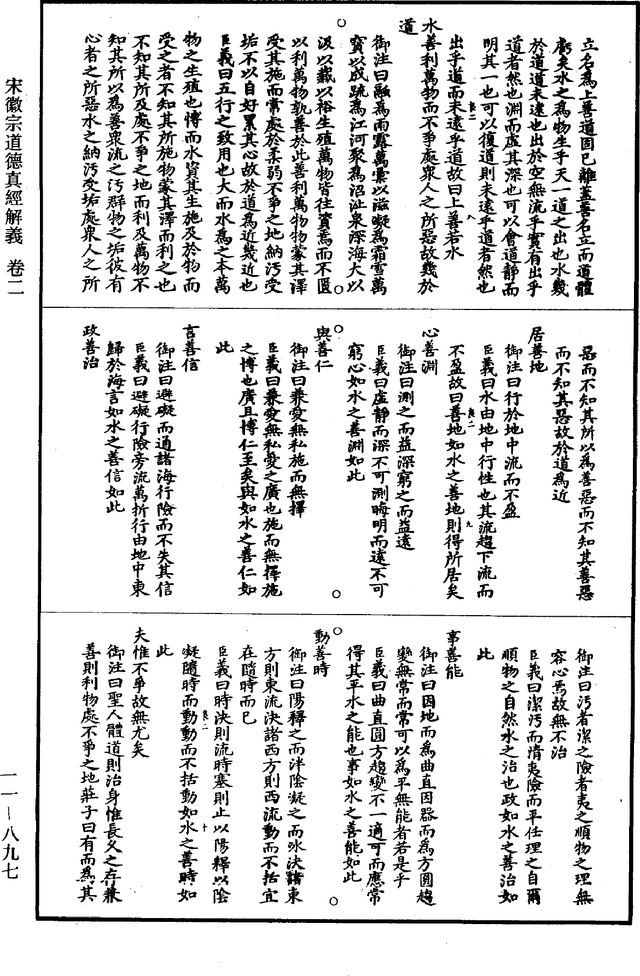 宋徽宗道德真經解義　卷二
一一—八九七
立名為上善道固已離蓋善名立而道體
虧矣水之為物生乎天一道之出也水幾
於道道未遠也出於空無流乎實有出乎
道者然也淵而虛其深也可以會道靜而
明其一也可以復道則未遠乎道者然也
出乎道而未遠乎道故曰上善若水
水善利萬物而不爭處衆人之所惡故幾於
道
御注曰融為雨露萬彙以滋凝為霜雪萬
寶以成疏為江河聚為沼沚泉深海大以
汲以藏以裕生殖萬物皆往資焉而不匱
以利萬物孰善於此善利萬物物蒙其澤
受其施而常處於柔弱不爭之地納污受
垢不以自好累其心故於道為近幾近也
臣義曰五行之致用也大而水為之本萬
物之生殖也博而水資其生施及於物而
受之者不知其所施物蒙其澤而利之也
不知其所及處不爭之地而利及萬物不
知其所以為善衆流之污群物之垢彼有
心者之所惡水之納污受垢處衆人之所
惡而不知其所以為善惡而不知其善惡
而不知其惡故於道為近
居善地
御注曰行於地中流而不盈
臣義曰水由地中行性也其流趨下流而
不盈故曰善地如水之善地則得所居矣
心善淵
御注曰測之而益深窮之而益遠
臣義曰虛靜而深不可測晦明而遠不可
窮心如水之善淵如此
與善仁
御注曰兼愛無私施而無擇
臣義曰兼愛無私愛之廣也施而無擇施
之博也廣且博仁至矣與如水之善仁如
此
言善信
御注曰避礙而通諸海行險而不失其信
臣義曰避礙行險旁流萬折行由地中東
歸於海言如水之善信如此
政善治
御注曰污者潔之險者夷之順物之理無
容心焉故無不治
臣義曰潔污而清夷險而平任理之自爾
順物之自然水之治也政如水之善治如
此
事善能
御注曰因地而為曲直因器而為方圓趨
變無常而常可以為平無能者若是乎
臣義曰曲直圓方趨變不一適可而應常
得其平水之能也事如水之善能如此
動善時
御注曰陽釋之而泮陰凝之而冰決諸東
方則東流決諸西方則西流動而不括宜
在隨時而已
臣義曰時決則流時塞則止以陽釋以陰
凝隨時而動動而不括動如水之善時如
此
夫惟不爭故無尤矣
御注曰聖人體道則治身惟長久之存兼
善則利物處不爭之地莊子曰有而為其